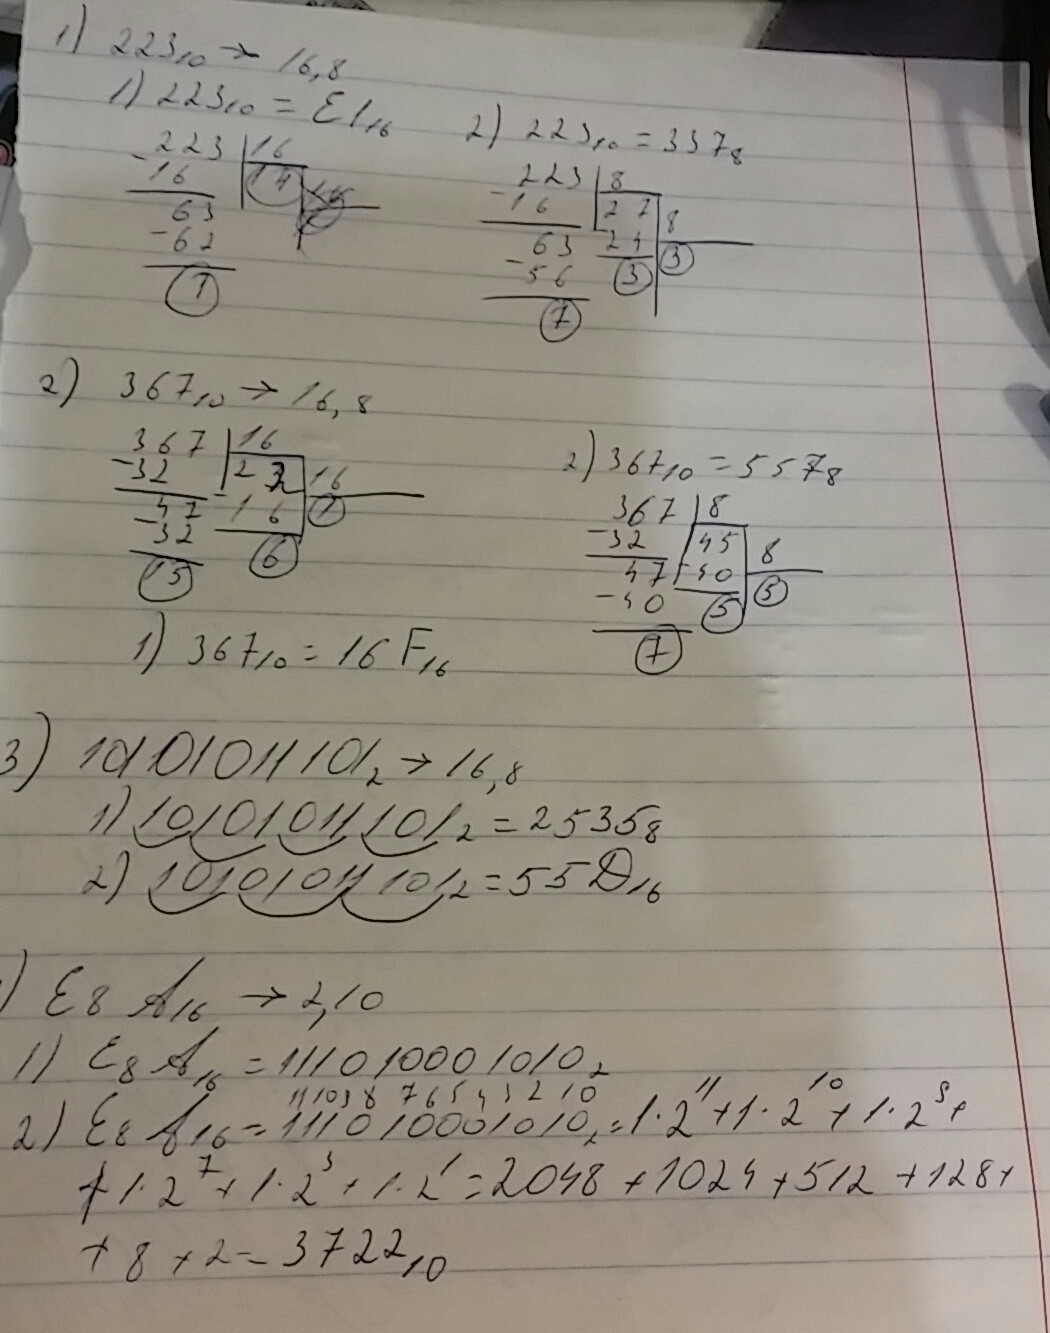 1) 223₁₀ → 16,8
1) 223₁₀ = E1₁₆
223 | 16
- 16 14
63
- 62
1
2) 223₁₀ = 337₈
223 | 8
- 16 27 | 8
63 - 24 3
- 56 3
7
2) 367₁₀ → 16,8
367 | 16
- 32 22 | 16
47 - 16 1
- 32 6
15
1) 367₁₀ = 16F₁₆
2) 367₁₀ = 557₈
367 | 8
- 32 45 | 8
47 - 40 5
- 40 5
7
3) 10101011101₂ → 16,8
1) 10101011101₂ = 2535₈
2) 10101011101₂ = 55D₁₆
) E8A₁₆ → 2,10
1) E8A₁₆ = 111010001010₂
11 10 9 8 7 6 5 4 3 2 1 0
2) E8A₁₆ = 111010001010₂ = 1·2¹¹ + 1·2¹⁰ + 1·2⁹ +
+ 1·2⁷ + 1·2³ + 1·2¹ = 2048 + 1024 + 512 + 128 +
+ 8 + 2 = 3722₁₀